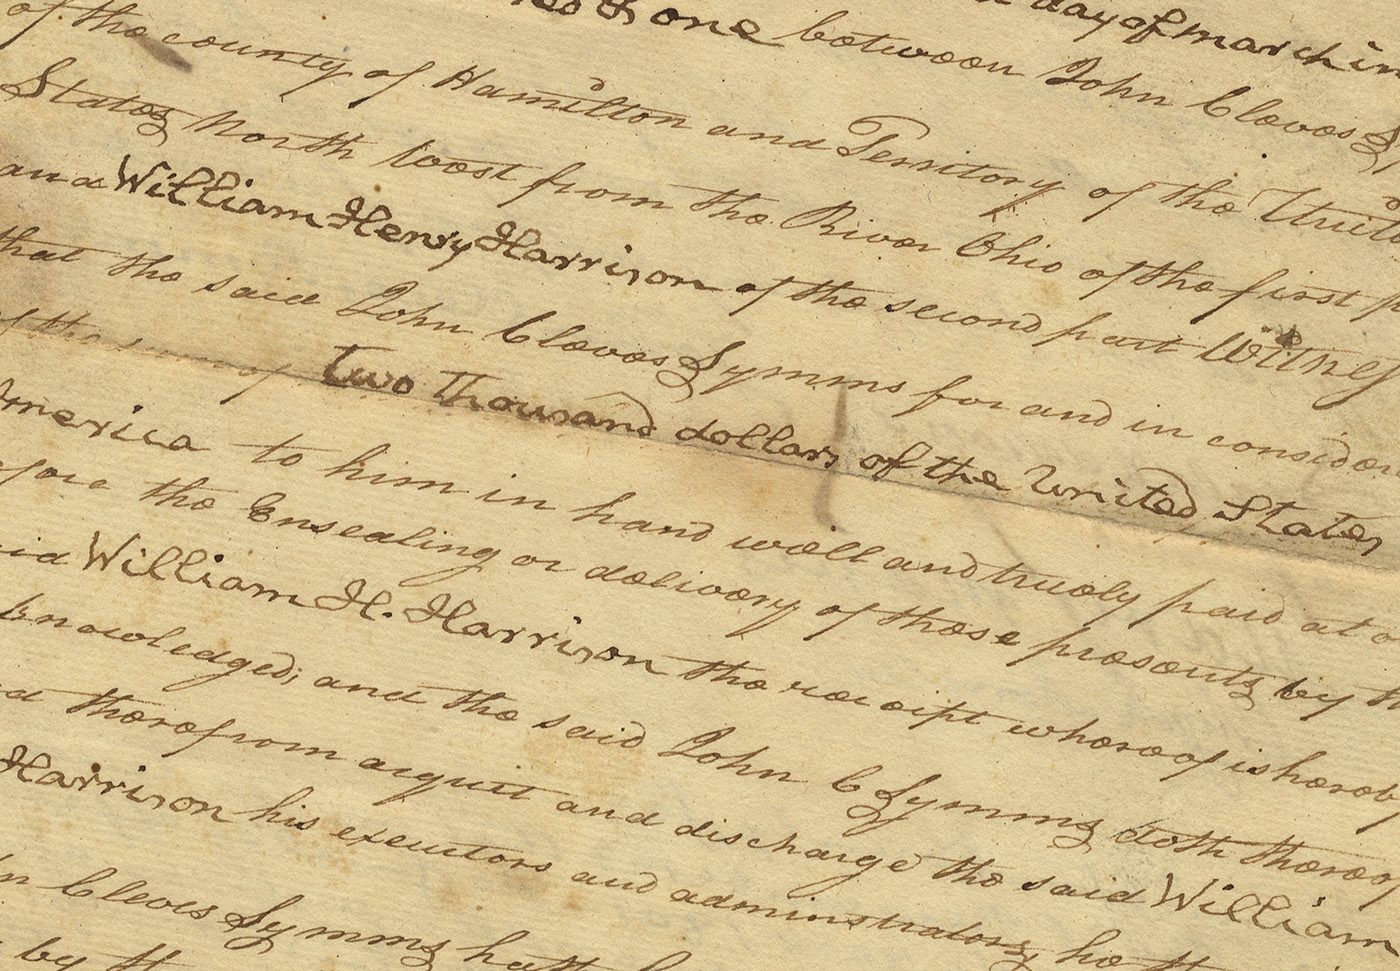 day of march in
& one between John Cleves
of the county of Hamilton and Territory of the
States North West from the River Ohio of the first
and William Henry Harrison of the second part
that the said John Cleves Symmes for and in
of the sum of two thousand dollars of the United States
America to him in hand well and truely paid at
the Ensealing or delivery of these presents by
William H. Harrison the receipt whereof is
and the said John C Symmes doth
therefrom acquit and discharge the said William
Harrison his executors and adminstrators, he
Cleves Symmes hath
by